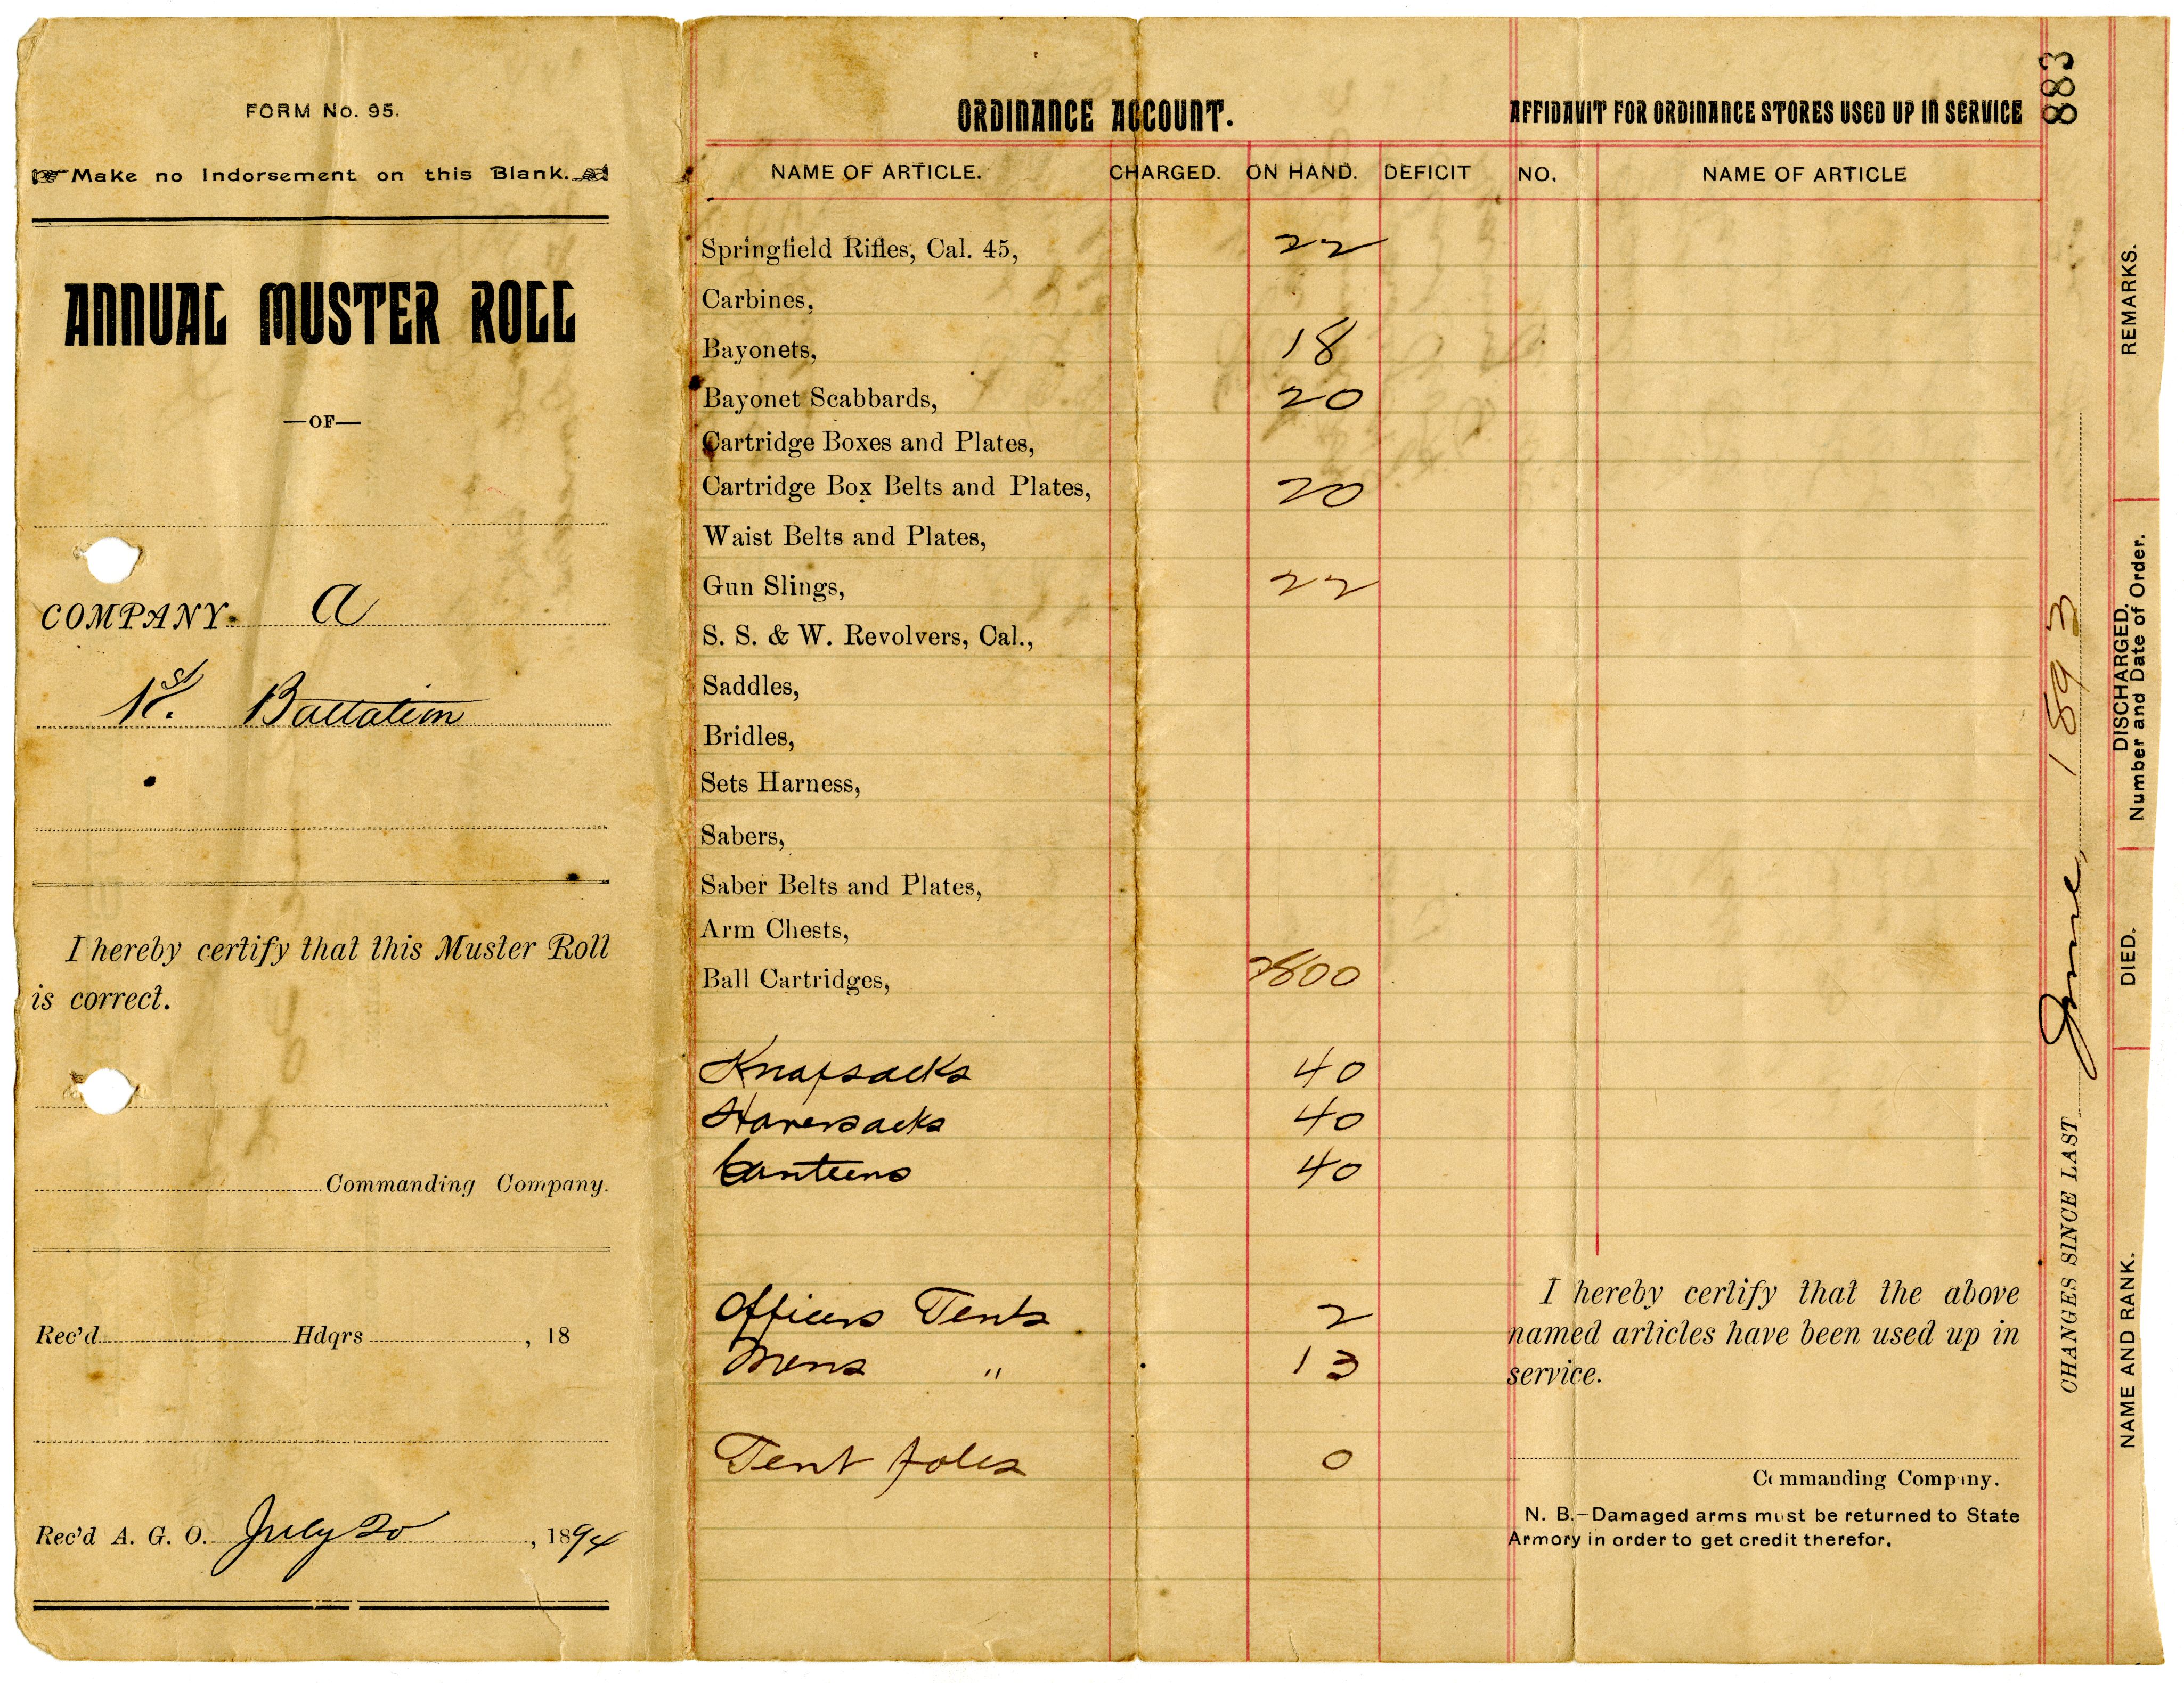 FORM No. 95.
Make no Indorsement on this Blank.
ANNUAL MUSTER ROLL
—OF—
COMPANY. A
1st. Battalion
I hereby certify that this Muster Roll
is correct.
Commanding Company.
Rec'd Hdqrs , 18
Rec'd A. G. O. July 20 , 1894
ORDINANCE ACCOUNT.
NAME OF ARTICLE. CHARGED. ON HAND. DEFICIT
Springfield Rifles, Cal. 45, 22
Carbines,
Bayonets, 18
Bayonet Scabbards, 20
Cartridge Boxes and Plates,
Cartridge Box Belts and Plates, 20
Waist Belts and Plates,
Gun Slings, 22
S. S. & W. Revolvers, Cal.,
Saddles,
Bridles,
Sets Harness,
Sabers,
Saber Belts and Plates,
Arm Chests,
Ball Cartridges, 2800
Knapsacks 40
Haversacks 40
Canteens 40
Officers Tents 2
Mens " 13
Tent poles 0
AFFIDAVIT FOR ORDINANCE STORES USED UP IN SERVICE
NO. NAME OF ARTICLE
I hereby certify that the above
named articles have been used up in
service.
Commanding Company.
N. B.—Damaged arms must be returned to State
Armory in order to get credit therefor.
883
CHANGES SINCE LAST June, 1893
NAME AND RANK. DIED. DISCHARGED. Number and Date of Order. REMARKS.